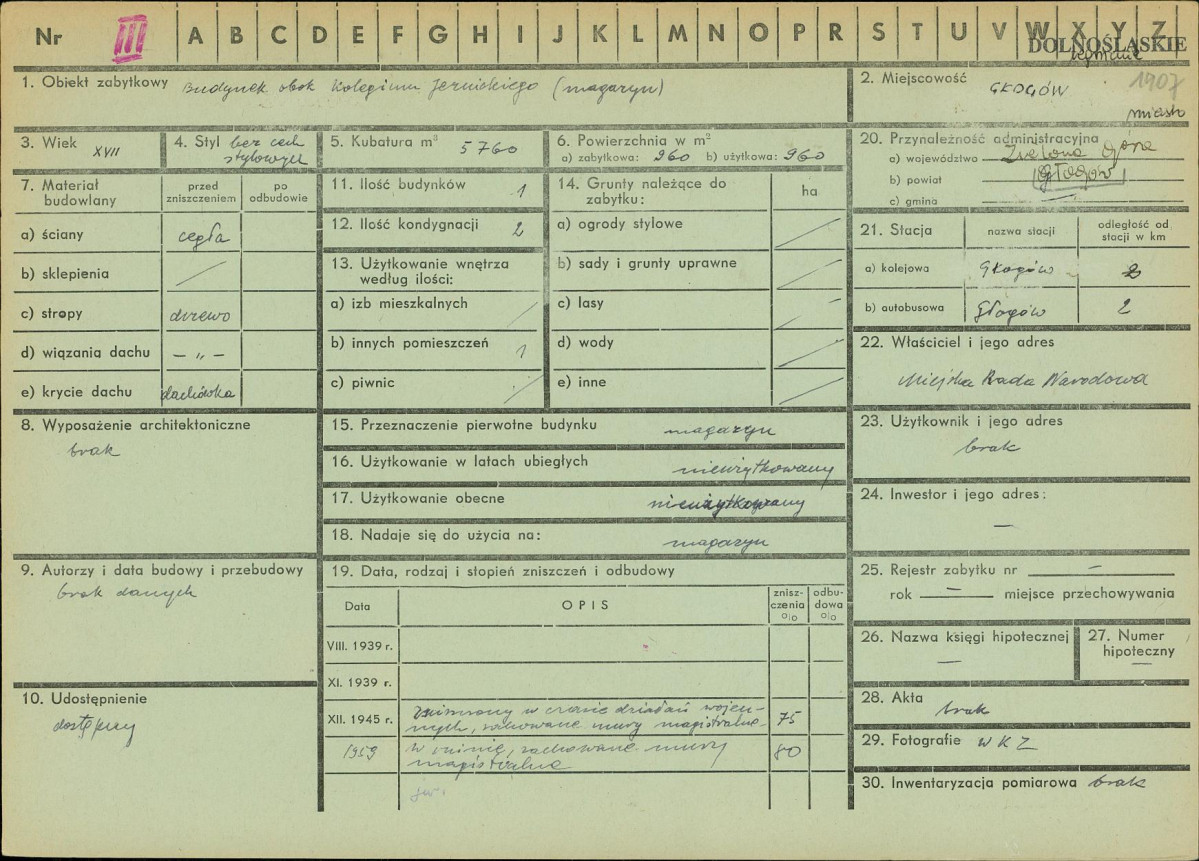 Nr III A B C D E F G H I J K L M N O P R S T U V W X Y Z
DOLNOŚLĄSKIE
1. Obiekt zabytkowy Budynek obok Kolegium Jezuickiego (magazyn)
2. Miejscowość GŁOGÓW
1907
miasto
3. Wiek XVII
4. Styl bez cech
stylowych
5. Kubatura m³ 5760
6. Powierzchnia w m²
a) zabytkowa: 960 b) użytkowa: 960
20. Przynależność administracyjna
a) województwo Zielona Góra
b) powiat Głogów
c) gmina —
7. Materiał
budowlany
przed
zniszczeniem
po
odbudowie
a) ściany cegła
b) sklepienia
c) stropy drzewo
d) wiązania dachu — „ —
e) krycie dachu dachówka
11. Ilość budynków 1
12. Ilość kondygnacji 2
13. Użytkowanie wnętrza
według ilości:
a) izb mieszkalnych
b) innych pomieszczeń 1
c) piwnic
14. Grunty należące do
zabytku:
ha
a) ogrody stylowe
b) sady i grunty uprawne
c) lasy
d) wody
e) inne
21. Stacja
nazwa stacji
odległość od
stacji w km
a) kolejowa Głogów 2
b) autobusowa Głogów 2
22. Właściciel i jego adres
Miejska Rada Narodowa
8. Wyposażenie architektoniczne
brak
15. Przeznaczenie pierwotne budynku magazyn
16. Użytkowanie w latach ubiegłych nieużytkowany
17. Użytkowanie obecne nieużytkowany
18. Nadaje się do użycia na: magazyn
23. Użytkownik i jego adres
brak
24. Inwestor i jego adres:
—
9. Autorzy i data budowy i przebudowy
brak danych
19. Data, rodzaj i stopień zniszczeń i odbudowy
Data
OPIS
znisz-
czenia
o/o
odbu-
dowa
o/o
VIII. 1939 r.
XI. 1939 r.
XII. 1945 r. zniszczony w czasie działań wojen-
nych, zachowane mury magistralne 75
1959 w ruinie, zachowane mury
magistralne 80
25. Rejestr zabytku nr —
rok — miejsce przechowywania
26. Nazwa księgi hipotecznej
—
27. Numer
hipoteczny
—
10. Udostępnienie
dostępny
28. Akta brak
29. Fotografie WKZ
30. Inwentaryzacja pomiarowa brak